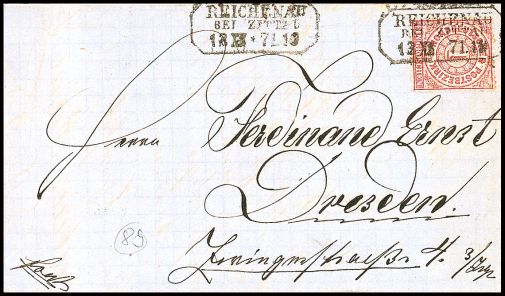 REICHENAU
BEI ZITTAU
12 XII * 71.12
REICHENAU
BEI ZITTAU
12 XII 71.12
POSTBEZIRK
Herrn
Ferdinand Ernst
Dresden.
Zwingerstraße 4.
89